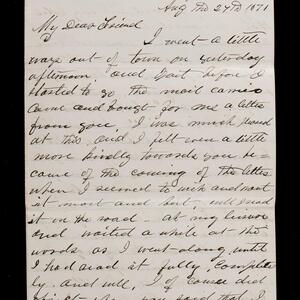 Aug the 27th 1871
My Dear Friend
I went a little
ways out of town on yesterday
afternoon, and just before I
started to go the mail carrier
came and brought for me a letter
from you, I was much pleased
at this and I felt even a little
more kindly towards you be-
cause of the coming of the letter
when I seemed to wish and want
it most and
it on the road - at my leisure
and waited a while at the
words as I went along until
I had read it fully, Complete
ly and well, I of course did